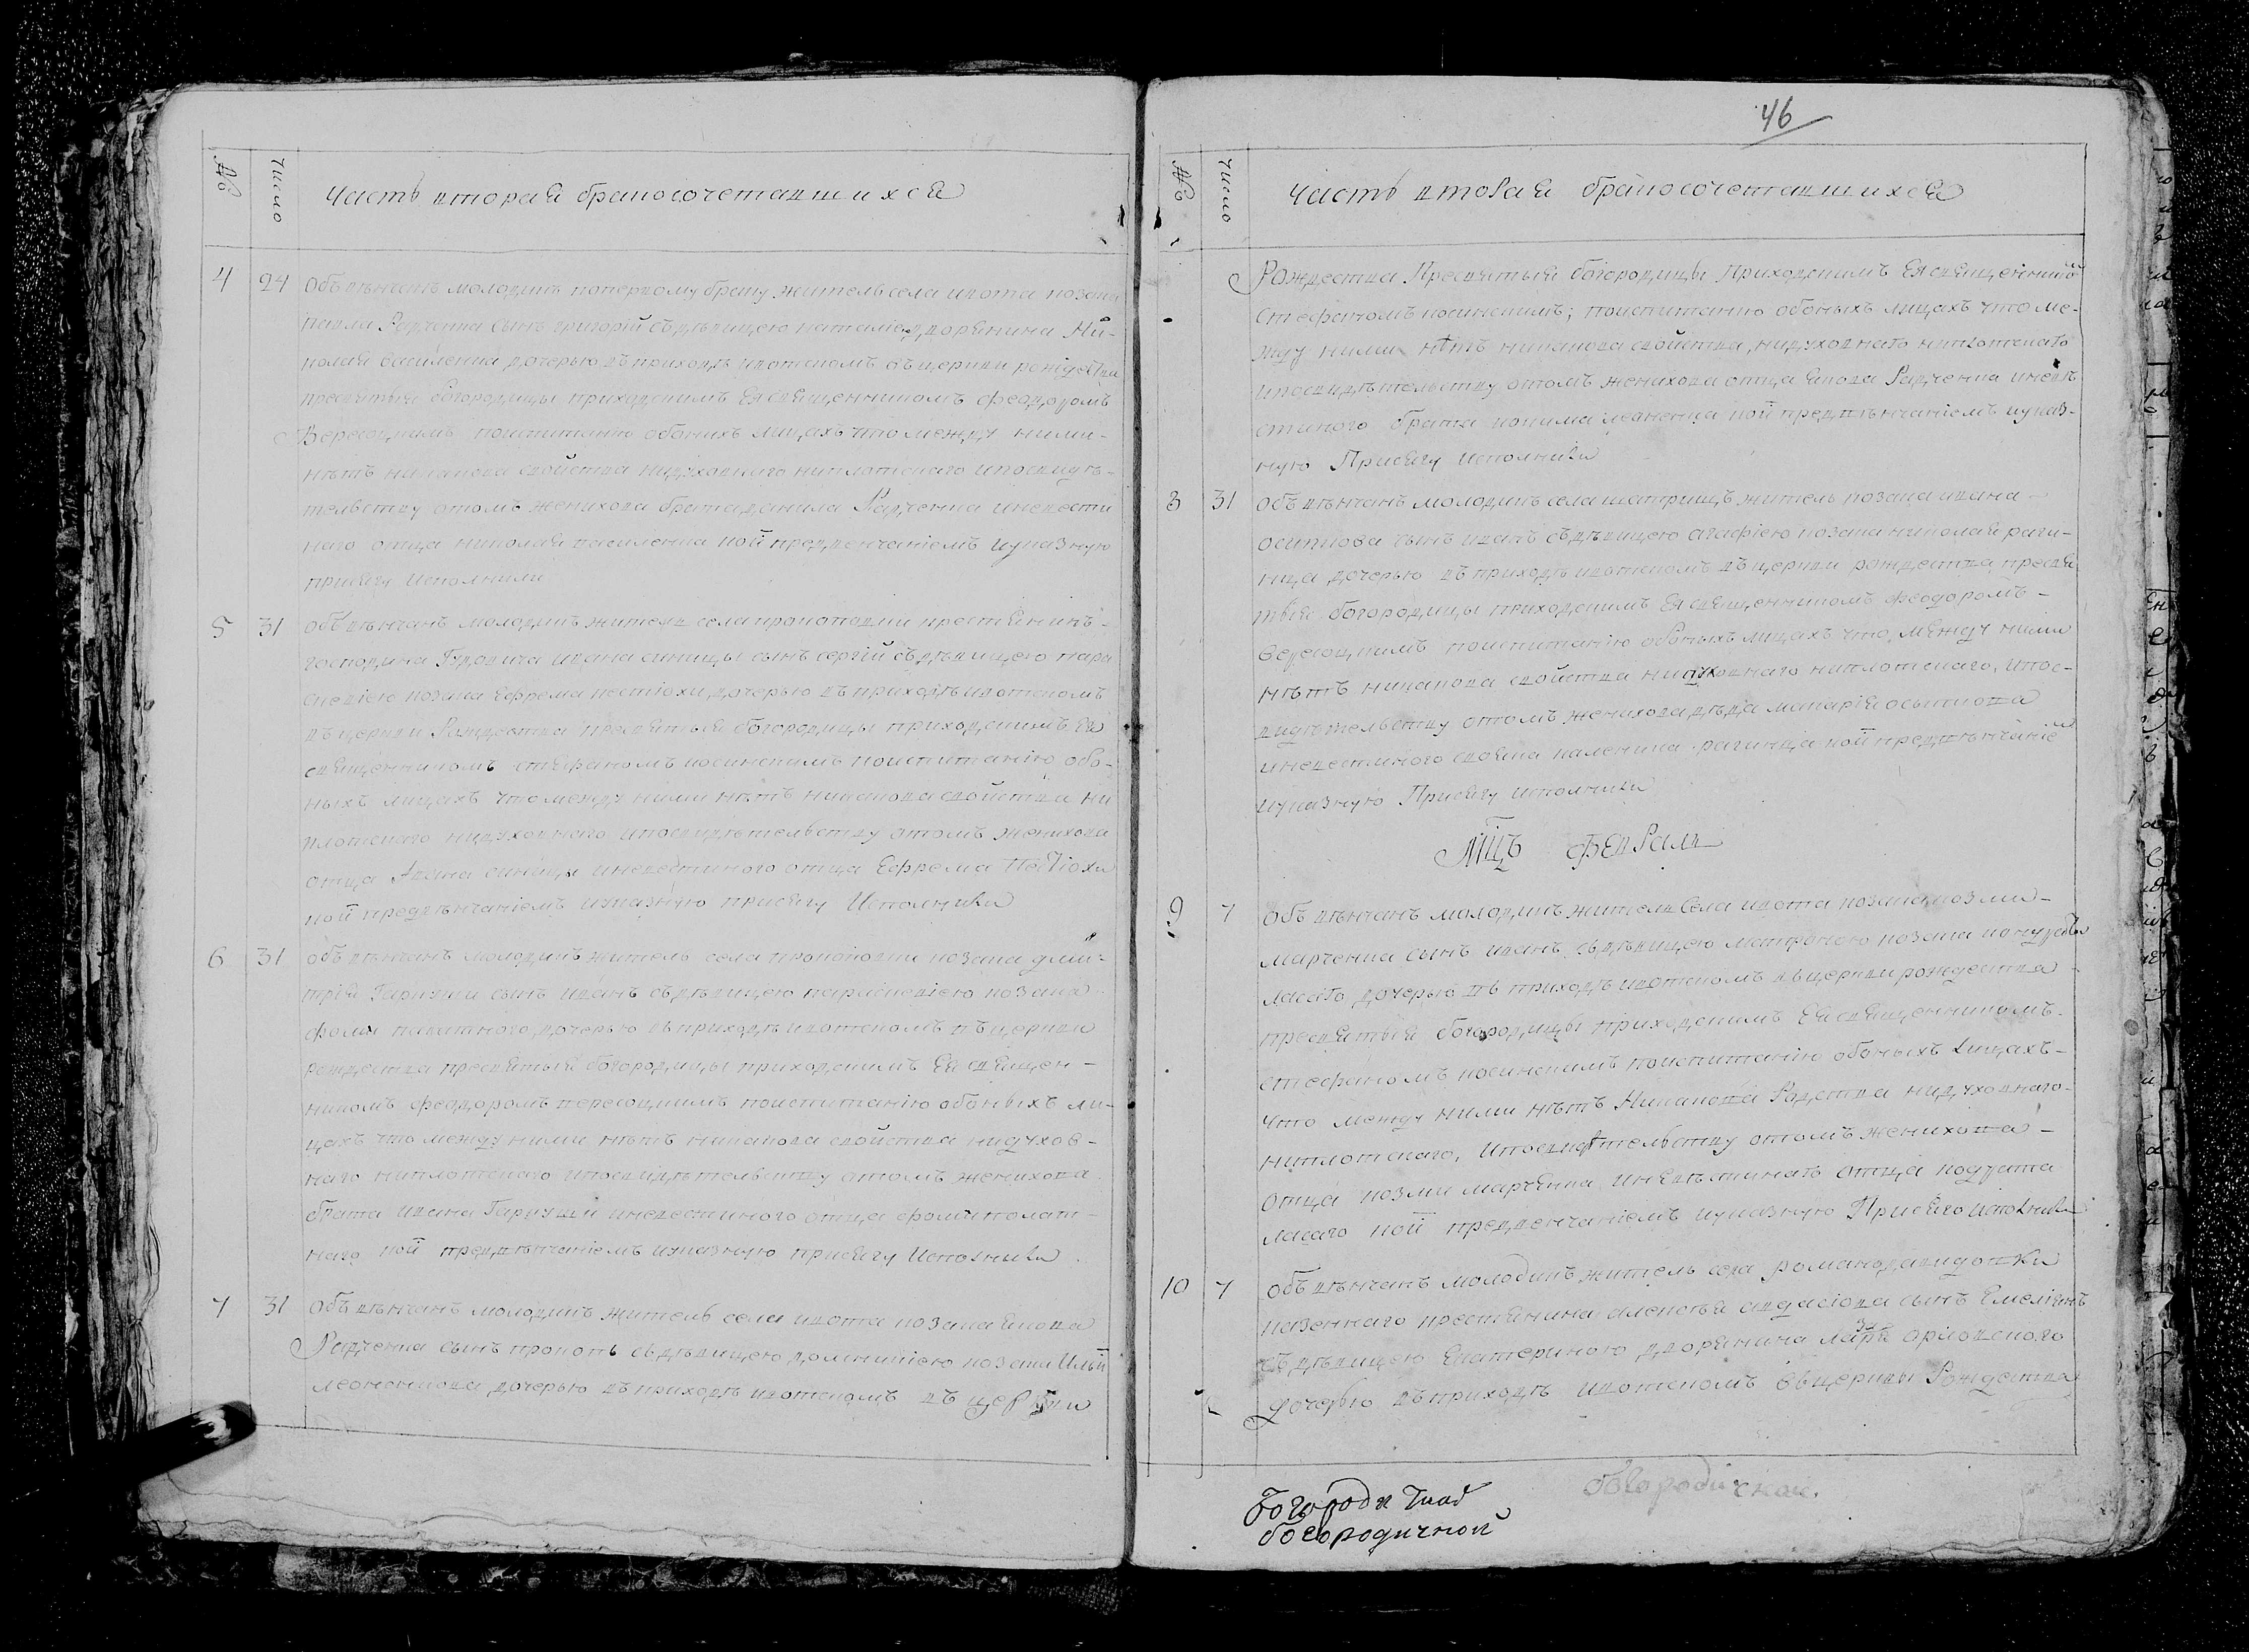 № число Часть вторая бракосочетавшихся
4 24 Объвѣнчанъ молодикъ попервому браку житель села ивота козака
павла Радченка сынъ григорій съдѣвицею наталіею дворянина Ни-
колая василенка дочерью въприходѣ ивотскомъ въцеркви рождества
пресвятыя богородицы приходскимъ Ея священникомъ феодоромъ
Вересоцкимъ поиспитанію обоихъ лицахъ что между ними-
нѣтъ никакова свойства нидуховнаго ниплотскаго ипосвидѣ-
тельству отомъ женихова брата данила Радченка иневести
наго отца николая василенка кой предвенчаніемъ иуказную
присягу Исполнили
5 31 Объвѣнчанъ молодикъ житель села прокоповки крестянинъ-
господина Гудовича ивана синицы сынъ сергій съдѣвицею пара
скевіею козака Ефрема костюхи дочерью въприходѣ ивотскомъ
въцеркви Рождества пресвятыя богородицы приходскимъ Ея
священникомъ стефаномъ косинскимъ поиспитанію обо-
ныхъ лицахъ чтомежду ними нѣтъ никакова свойства ни
плотскаго нидуховнаго ипосвидѣтельству отомъ женихова
отца Ивана синицы иневестиного отца Ефрема Костюхи
кой предвѣнчаніемъ иуказную присягу Исполнили
6 31 объвѣнчанъ молодикъ житель села прокоповки козака дми-
трія Гаркуши сынъ иванъ съдѣвицею параскевіею козака
фомы палатного дочерью въприходѣ ивотскомъ въцеркви
рождества пресвятыя богородицы приходскимъ Ея священ-
никомъ феодоромъ вересоцкимъ поиспитанію обоныхъ ли-
цахъ что между ними нѣтъ никакова свойства нидухов-
наго ниплотскаго ипосвидѣтельству отомъ женихова
брата ивана Гаркуши иневестиного отца фомы полат-
наго кой предвѣнчаніемъ иуказную присягу Исполнили
7 31 Объвѣнчанъ молодикъ житель села ивота козака якова
Радченка сынъ прокопъ съдѣвицею домникіею козака Ильи
леоненкова дочерью въприходѣ ивотскомъ въ церкви
46
№ число Часть вторая бракосочетавшихся
Рождества Пресвятыя богородицы Приходскимъ Ея священникомъ
Стефаномъ косинскимъ; поиспитанію обоныхъ лицахъ что ме-
жду ними нѣтъ никакова свойства, нидуховнаго ниплотскаго
ипосвидѣтельству отомъ женихова отца якова Радченка иневѣ
стиного брата леоненка кой предвѣнчаніемъ иуказ-
ную Присягу исполнили
8 31 Объвѣнчанъ молодикъ села шатрищъ житель козака ивана
осипова сынъ иванъ съдѣвицею агафіею козака николая раги-
нца дочерью въприходѣ ивотскомъ въцеркви рождества пресвя
тыя богородицы приходскимъ Ея священникомъ феодоромъ-
вересоцкимъ поиспитанію обоныхъ лицахъ что, между ними
нѣтъ никакова свойства нидуховнаго ниплотскаго, ипос-
видѣтельству отомъ женихова дѣда макарія осипова
иневестиного свояка рагинца кой предвѣнчаніе
иуказную Присягу исполнили
Мцъ Февраль
9 7 Объвѣнчанъ молодикъ житель Села ивота козака козми-
марченка сынъ иванъ съдѣвицею матроною козака кондрата
ласаго дочерью въ приходѣ ивотскомъ въцеркви рождества
пресвятыя богородицы приходскимъ Ея священникомъ-
стефаномъ косинскимъ поиспитанію обоныхъ лицахъ-
что между ними нѣтъ Никакова Родства нидуховнаго-
ниплотскаго, ипосвидѣтельству отомъ женихова-
отца козми марченка иневѣстинаго отца кодрата
ласаго кой предвенчаніемъ иуказную Присягу исполнили
10 7 объвѣнчанъ молодикъ житель села романодавидовки
казеннаго крестянина алексѣя авдасіова сынъ Емеліянъ
съдѣвицею Екатериною дворянина орловского
дочерью въприходѣ ивотскомъ въцеркви Рождества
богородичной
богородичной